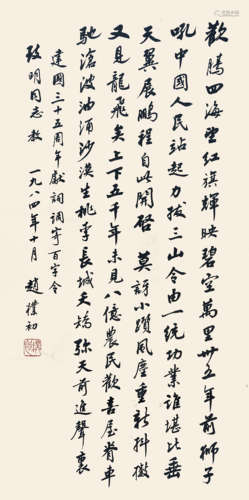 歡騰四海望紅旗輝映碧空萬里卅五年前獅子
吼中國人民站起力拔三山令由一統功業誰堪比垂
天翼展鵬程自此開啓 莫訝小躓風塵重新抖擻
又見龍飛矣上下五千年未見八億農民歡喜屋脊車
馳滄波油涌沙漠生桃李長城夭矯弥天前進聲裏
建國三十五周年獻詞調寄百字令
明同志教 一九八四年十月 趙樸初